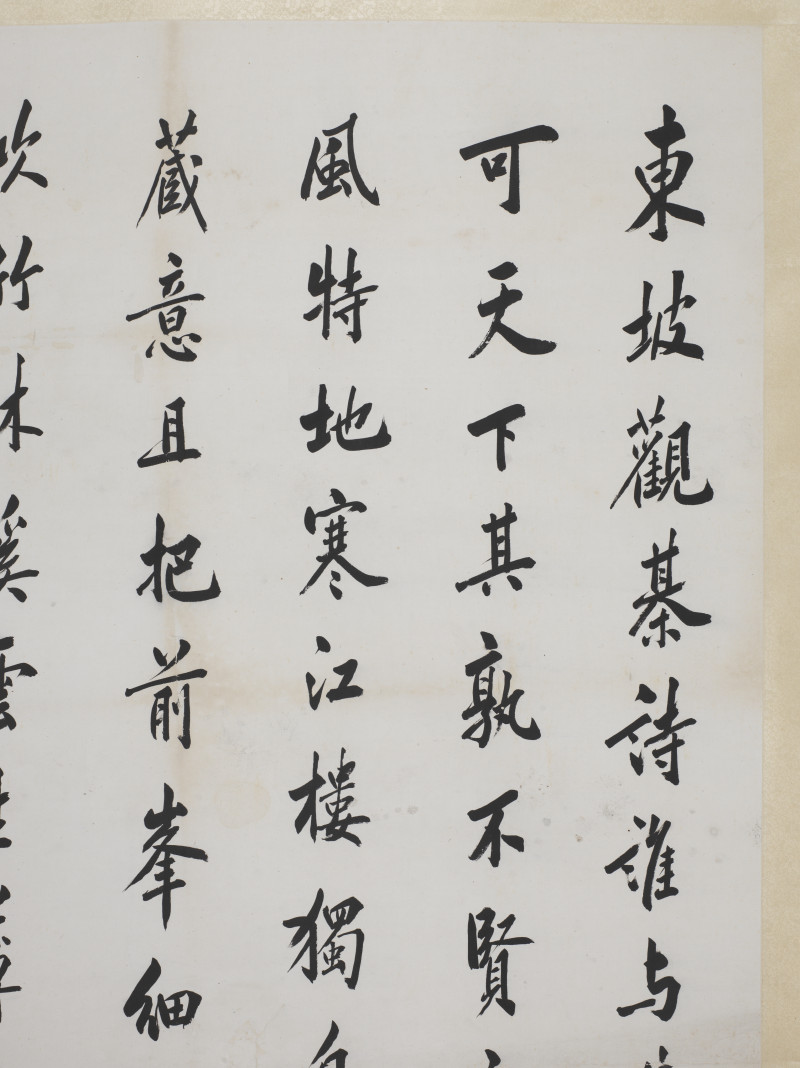 東坡觀棊詩誰与
可天下其孰不賢
風特地寒江樓獨自
蔵意且把前峯細
吹竹林溪雲